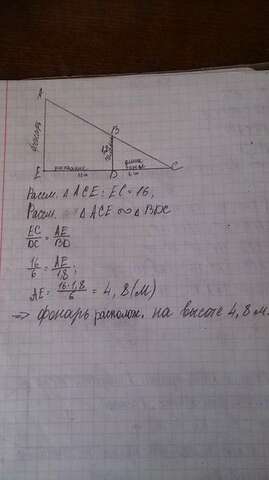 A
B
фонарь
1,8
E
расстояние
10 м
D
длина
тени
6 м
C
Рассм. △ ACE: EC = 16,
Рассм. △ ACE ∞ △ BDC
EC/DC = AE/BD
16/6 = AE/1,8;
AE = 16·1,8/6 = 4,8 (м)
=> фонарь располож. на высоте 4,8 м.